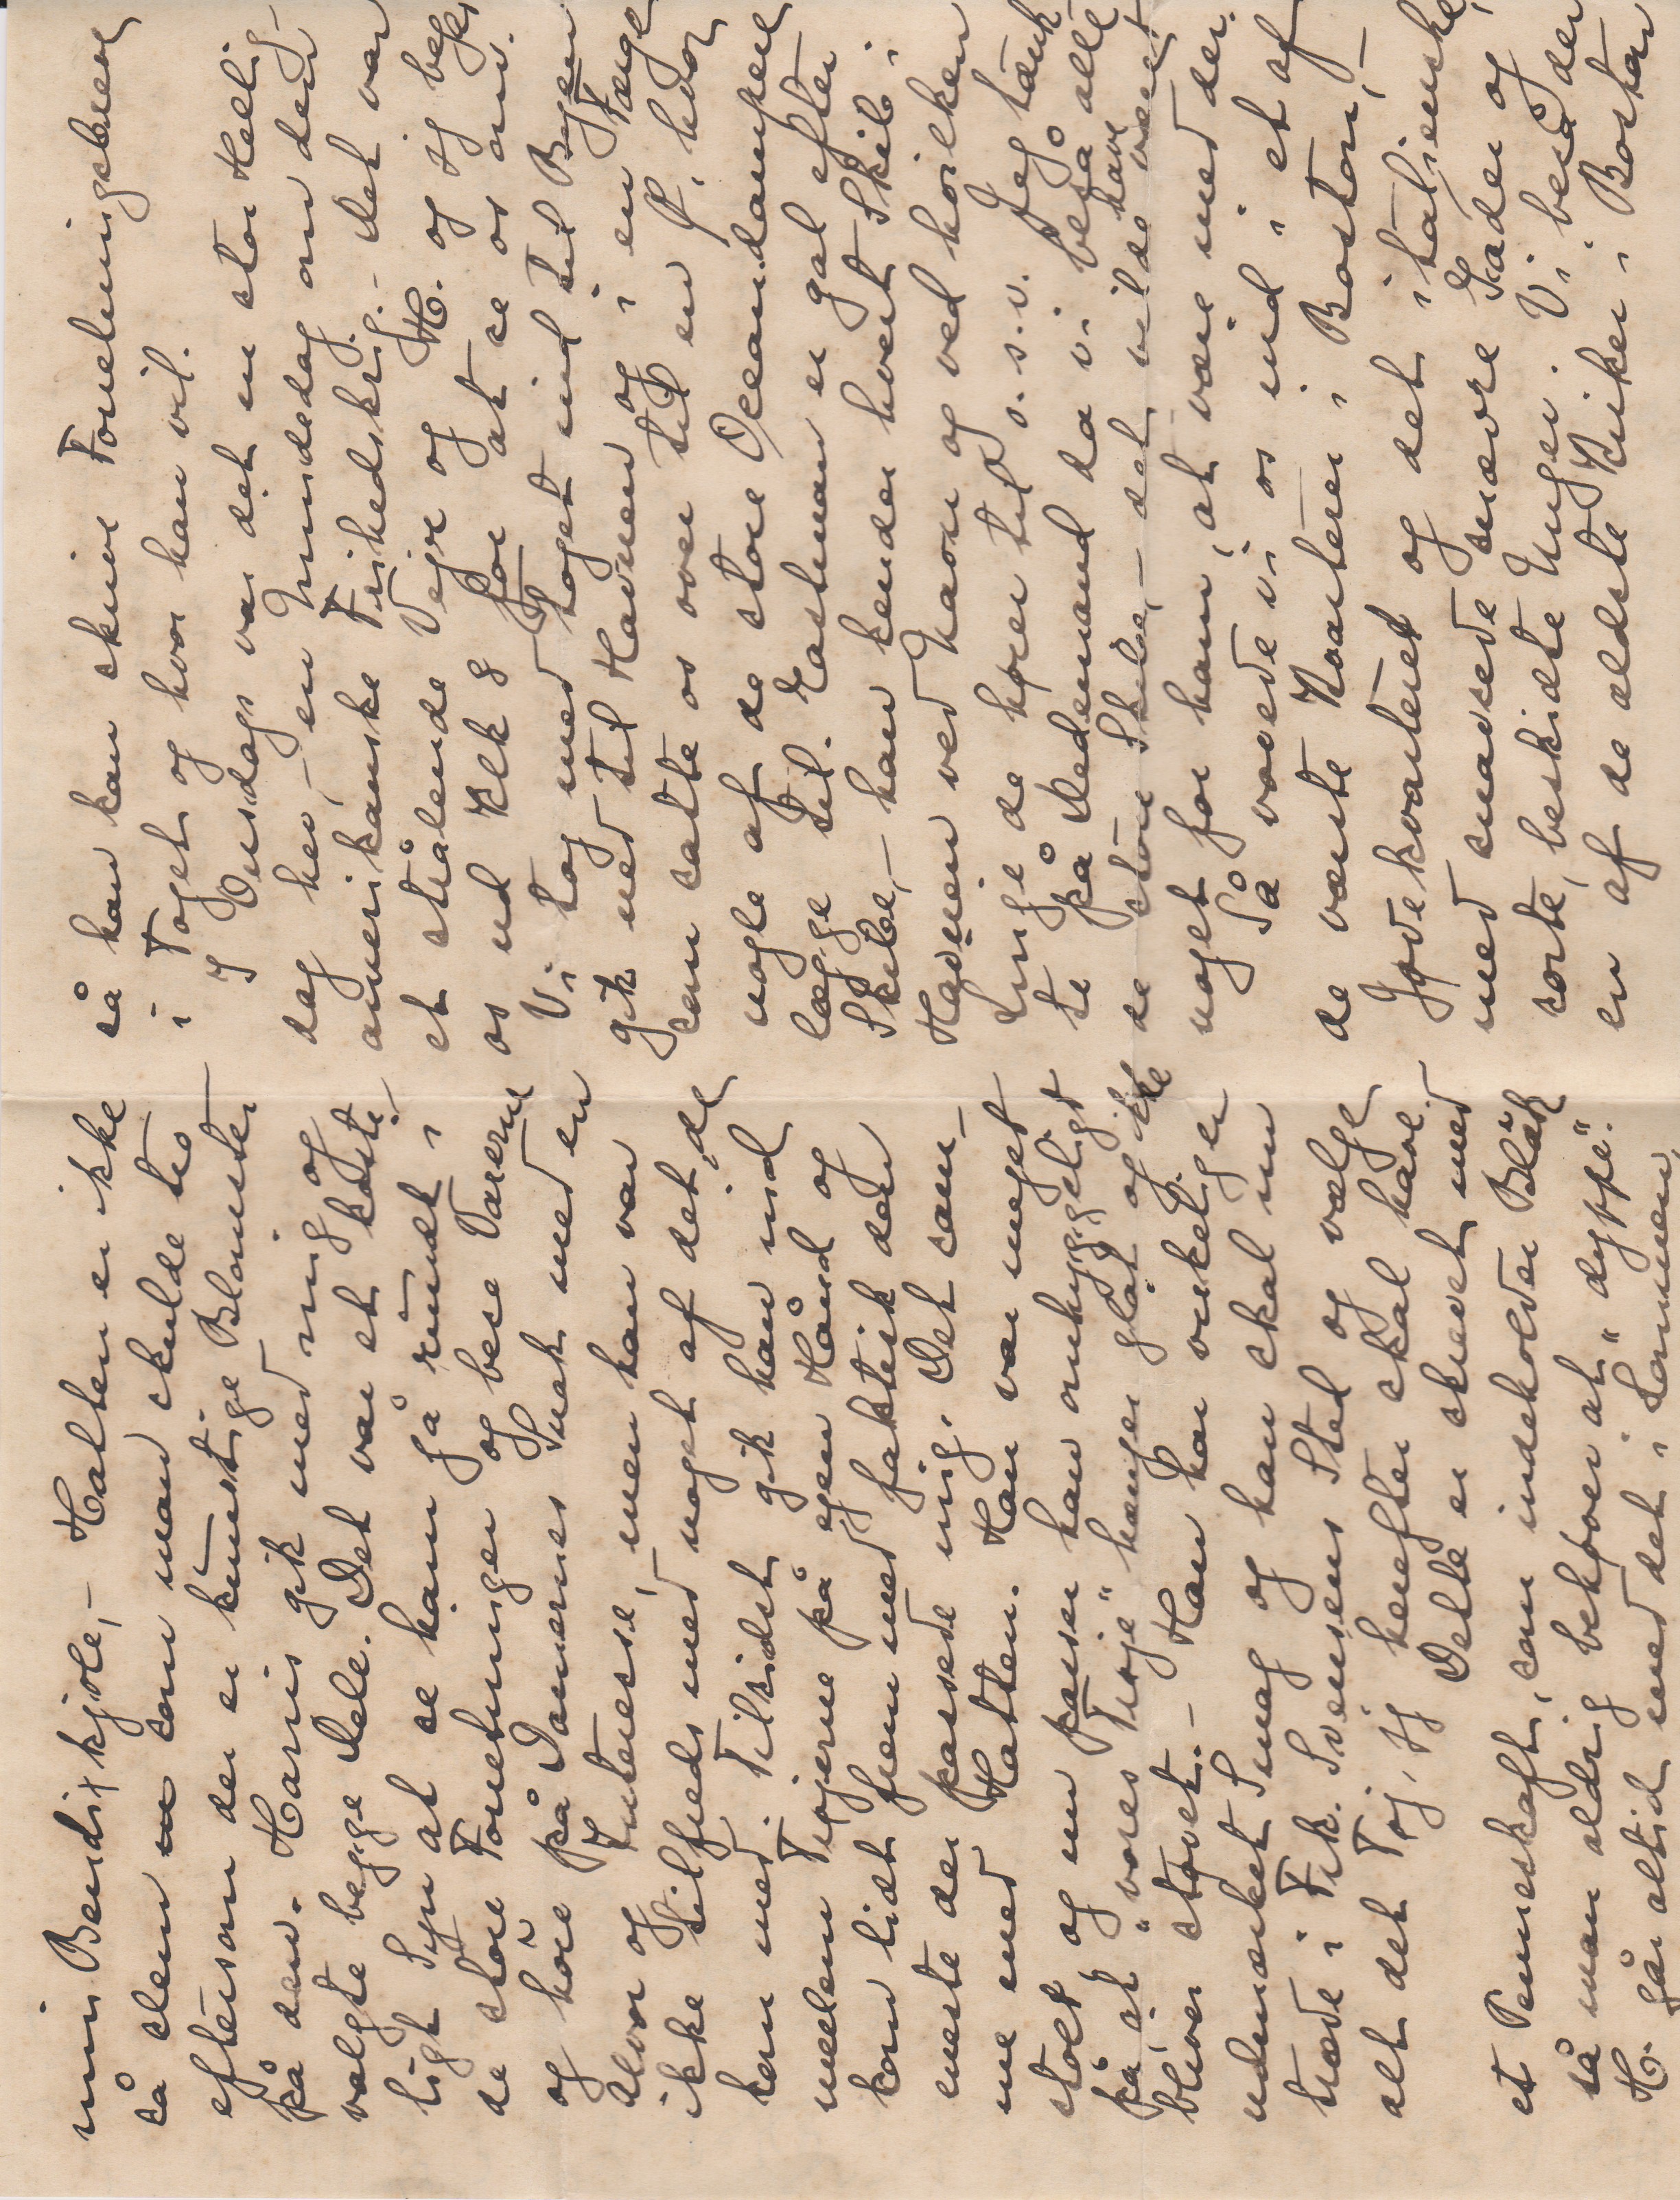 min Bendixkjole, - Hatten er ikke
så slem som man skulde tro
eftersom der er kunstige Blomster
på den. Harris gik med mig og
valgte begge Dele. Det var et koste-
ligt Syn at se ham gå rundt i
de store Forretninger og bese Varerne
og høre på Damernes Snak med en
Alvor og Interesse, men han var
ikke tilfreds med noget af det, de
kom med. Tilsidst gik han ind
mellem Trøjerne på egen Hånd og
kom lidt frem med faktisk den
eneste der passede mig. Det sam-
me med Hatten. Han var meget
stolt og nu passer han omhyggeligt
på, at "vores Trøje" hænger glat og ikke
bliver støvet. - Han har virkelig en
udmærket Smag og han skal nu
træde i Frk. Svensens Sted og vælge
alt det Tøj, jeg herefter skal have.
Dette er skrevet med
et Penneskaft, som indeholder Blæk
så man aldrig behøver at "dyppe".
H. går altid med det i Lommen,
så han kan skrive Forelæsninger
i Toget og hvor han vil.
I Onsdags var det en stor Hellig-
dag her, - en Mindedag om den
amerikanske Frihedskrig. - det var
et strålende Vejr og H. og jeg begav
os ud Klk 8 for at se os om.
Vi tog med Toget ind til Byen
gik ned til Havnen og i en Færge
som satte os over til en Ø, hvor
nogle af de store Oceandampere
lægge til. Eastman er gal efter
Skibe, - han kender hvert Skib i
Havnen ved Navn og ved hvilken
Linje de hører til o.s.v. Jeg tænk-
te på Vedemand da vi beså alle
de store Skibe, - det vilde have været
noget for ham, at være med der.
Så vovede vi os ind i et af
de værste Kvarterer i Boston, -
Jødekvarteret og det italienske,
med snavsede snævre Gader og
sorte, beskidte Unger. Vi beså der
en af de ældste Kirker i Boston